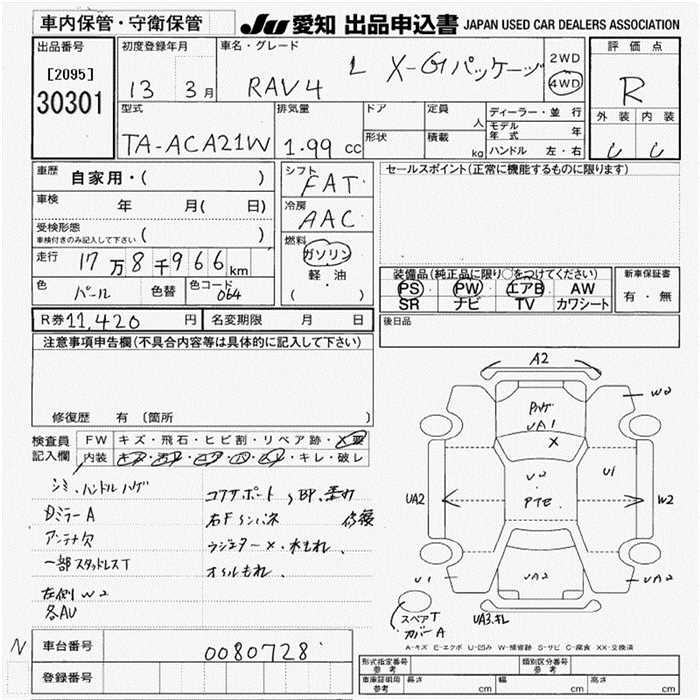 車内保管・守衛保管
JU 愛知 出品申込書 JAPAN USED CAR DEALERS ASSOCIATION
出品番号
[2095]
30301
初度登録年月
13 3月
車名・グレード
RAV4 L X-Gパッケージ
2WD
4WD
評価点
R
外装 内装
型式
TA-ACA21W
排気量
1.99 cc
ドア
形状
定員
人
積載
kg
ディーラー・並行
モデル年式 年
ハンドル 左・右
車歴 自家用・( )
車検 年 月( 日)
受検形態
車検付きのみ記入して下さい ( )
走行 17万8千966km
色 パール 色替 色コード 064
シフト
FAT
冷房
AAC
燃料
ガソリン
軽・油
( )
セールスポイント(正常に機能するものに限ります)
装備品(純正品に限り○をつけてください)
PS PW エアB AW
SR ナビ TV カワシート
新車保証書
有・無
R券 11,420 円 名変期限 月 日
後日品
注意事項申告欄(不具合内容等は具体的に記入して下さい)
修復歴 有 〔箇所
検査員
記入欄
FW キズ・飛石・ヒビ割・リペア跡・X要
内装 キズ・汚れ・コゲ・穴・スレ・キレ・破レ
シミ・ハンドルハゲ
DミラーA
アンテナ欠
一部スタッドレスT
左側W2
各AU
コアサポート、BP、
右Fインパネ 修復
ラジエター×・水もれ、
オイルもれ、
A2
W2
UA1
X
U2
U1
UA2
W2
U1
UA2
UA2
UA3.キレ
スペアT
カバーA
A-キズ E-エクボ U-凹み W-補修跡 S-サビ C-腐食 XX-交換済
N
車台番号 0080728
登録番号
形式指定番号
参考
類別区分番号
参考
車庫証明用
参考
長さ cm 幅 cm 高さ cm